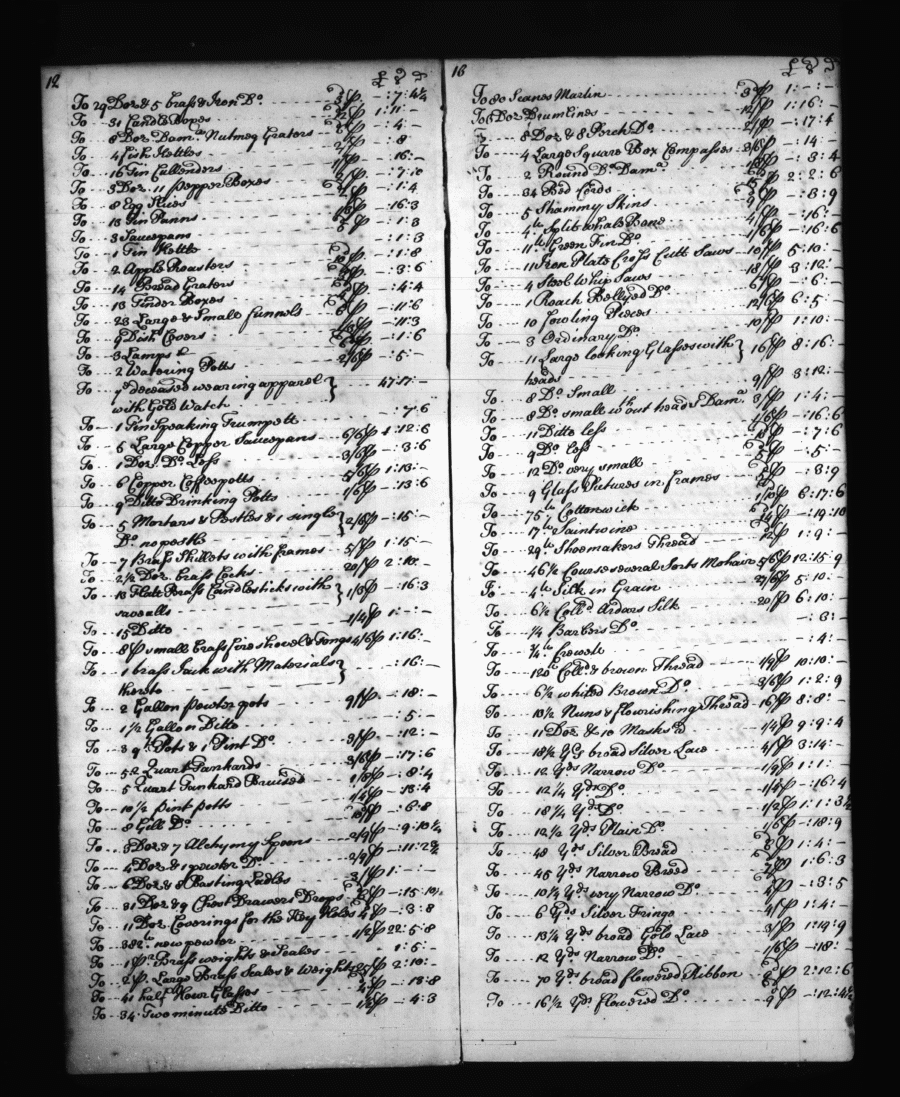 12
£ s D
To 29 Doz & 5 brass & Iron Do. - : 7 : 4¼
To 31 Candle Boxes 1 : 11 : -
To 8 Doz Dam.d Nutmeg Graters - : 4 : -
To 4 fish Kettles - : 8
To 16 Tin Cullenders - 16 : -
To 3 Doz. 11 pepper Boxes - : 7 : 10
To 8 Egg Slices - : 1 : 4
To 13 Tin Panns - : 16 : 3
To 3 Saucepans - : 1 : 3
To 1 Tin Kettle - : 1 : 3
To 2 Apple Roasters - : 1 : 8
To 14 Bread Graters - : 3 : 6
To 13 Tinder Boxes - : 4 : 4
To 23 Large & Small funnels - : 11 : 6
To 9 Dish Covers - : 11 : 3
To 3 Lamps - : 1 : 6
To 2 Watering Potts 2/6 ℔ - : 5 : -
To ye deceased wearing apparel } 47 : 17 : -
with Gold Watch
To 1 Tin Speaking Trumpett - : 7 : 6
To 5 Large Copper Saucepans 6/6 ℔ 1 : 12 : 6
To 1 Doz. Do. Less - : 3 : 6
To 6 Copper Coffeepotts 5/6 ℔ 1 : 13 : -
To 9 Ditto Drinking Potts 1/6 ℔ - : 13 : 6
To 5 Mortars & Pestles & 1 single } - : 15 : -
Do. no pestle
To 7 Brass Skillets with frames 5/ ℔ 1 : 15 : -
To 2½ Doz. brass Cocks 20/ ℔ 2 : 10 : -
To 13 Flatt Brass Candlesticks with } 1/3 ℔ - : 16 : 3
savealls
To 15 Ditto 1/4 ℔ 1 : - : -
To 8 ℔ small brass fire shovel & Tongs 4/6 ℔ 1 : 16 : -
To 1 brass Jack with Materials } - : 16 : -
thereto
To 2 Gallon pewter pots 9/ ℔ - : 18 : -
To 1 ½ Gallon Ditto - : 5 : -
To 3 qt. Pots & 1 Pint Do. 3/ ℔ - : 12 : -
To 5 Quart Tankards 3/6 ℔ - : 17 : 6
To 5 Quart Tankard Bruised 1/8 ℔ - : 8 : 4
To 10 ½ pint potts 1/4 ℔ - : 13 : 4
To 8 Gill Do. - : 6 : 8
To 3 Doz & 7 Alchymy Spoons 2/9 ℔ - : 9 : 10¼
To 4 Doz & 1 pewter Do. 2/9 ℔ - : 11 : 2¾
To 6 Doz & 8 Basting Ladles 3/ ℔ 1 : -
To 31 Doz & 9 Chest Drawers Drops - : 15 : 10½
To 11 Doz Coverings for the Key Holes - : 3 : 8
To 382 lb. new pewter 1/2 ℔ 22 : 5 : 8
To 1 pr. Brass weights & Scales 1 : 5 : -
To 2 pr Large Brass Scales & Weights 2 : 10 : -
To 41 half Hour Glasses - : 13 : 8
To 34 Two minute Ditto - : 4 : 3
16
£ s D
To 80 Scanes Marlin 3d ℔ 1 : - : -
To 6 Doz Drumlines 1 : 16 : -
To 8 Doz & 8 Perch Do. 2/ ℔ - : 17 : 4
To 4 Large Square Box Compasses 3/6 ℔ - : 14 : -
To 2 Round Do. Dam.d - : 3 : 4
To 34 Bed Cords 2 : 2 : 6
To 5 Shammy Skins - : 3 : 9
To 4 lb Split whale Bone 4/ ℔ - : 16 : -
To 11 lb Green Fin Do. 1/6 ℔ - : 16 : 6
To 11 Iron Plate Cross Cutt Saws 10/ ℔ 5 : 10 : -
To 4 Steel Whip Saws 18/ ℔ 3 : 12 : -
To 1 Roach Bellyed Do. - : 6 : -
To 10 fowling Pieces 12/6 ℔ 6 : 5 : -
To 3 Ordinary Do. 10/ ℔ 1 : 10 : -
To 11 Large looking Glasses with } 16/ ℔ 8 : 16 : -
heads
To 8 Do. Small 9/ ℔ 3 : 12 : -
To 8 Do. small without heads Dam.d 3/ ℔ 1 : 4 : -
To 11 Ditto less 1/6 ℔ - : 16 : 6
To 9 Do. less - : 7 : 6
To 12 Do. very small - : 5 : -
To 9 Glass Pictures in frames - : 3 : 9
To 75 lb Cottonwick 1/10 ℔ 6 : 17 : 6
To 17 lb Saintwine - : 19 : 10
To 29 lb Shoemakers Thread 1 : 9 : -
To 46½ Course several Sorts Mohair 5/6 ℔ 12 : 15 : 9
To 4 lb Silk in Grain 27/6 ℔ 5 : 10 : -
To 6½ Coll.d Ardass Silk 20/ ℔ 6 : 10 : -
To ¼ Barbers Do. - : 3 : -
To ¾ lb. Crewell - : 4 : -
To 120 lb Coll.d & brown Thread 1/9 ℔ 10 : 10 : -
To 6½ whited Brown Do. 3/6 ℔ 1 : 2 : 9
To 10½ Nuns & flourishing Thread 16/ ℔ 8 : 8 : -
To 11 Doz & 10 Masks 1/4 ℔ 9 : 9 : 4
To 18½ Yds broad Silver Lace 4/ ℔ 3 : 14 : -
To 12 Yds Narrow Do. 1/9 ℔ 1 : 1 : -
To 12¼ Yds Do. 1/4 ℔ - : 16 : 4
To 18¼ Yds Do. 1/2 ℔ 1 : 1 : 3½
To 12½ Yds Plain Do. 1/6 ℔ - : 18 : 9
To 48 Yds Silver Braid 1 : 4 : -
To 45 Yds Narrow Breed 1 : 6 : 3
To 10¼ Yds very Narrow Do. - : 3 : 5
To 6 Yds Silver Fringe 4/ ℔ 1 : 4 : -
To 13¼ Yds broad Gold Lace 3/ ℔ 1 : 19 : 9
To 12 Yds Narrow Do. 1/6 ℔ - : 18 : -
To 70 Yds. broad flowered Ribbon 2 : 12 : 6
To 16½ Yds flowered Do. - : 12 : 4½